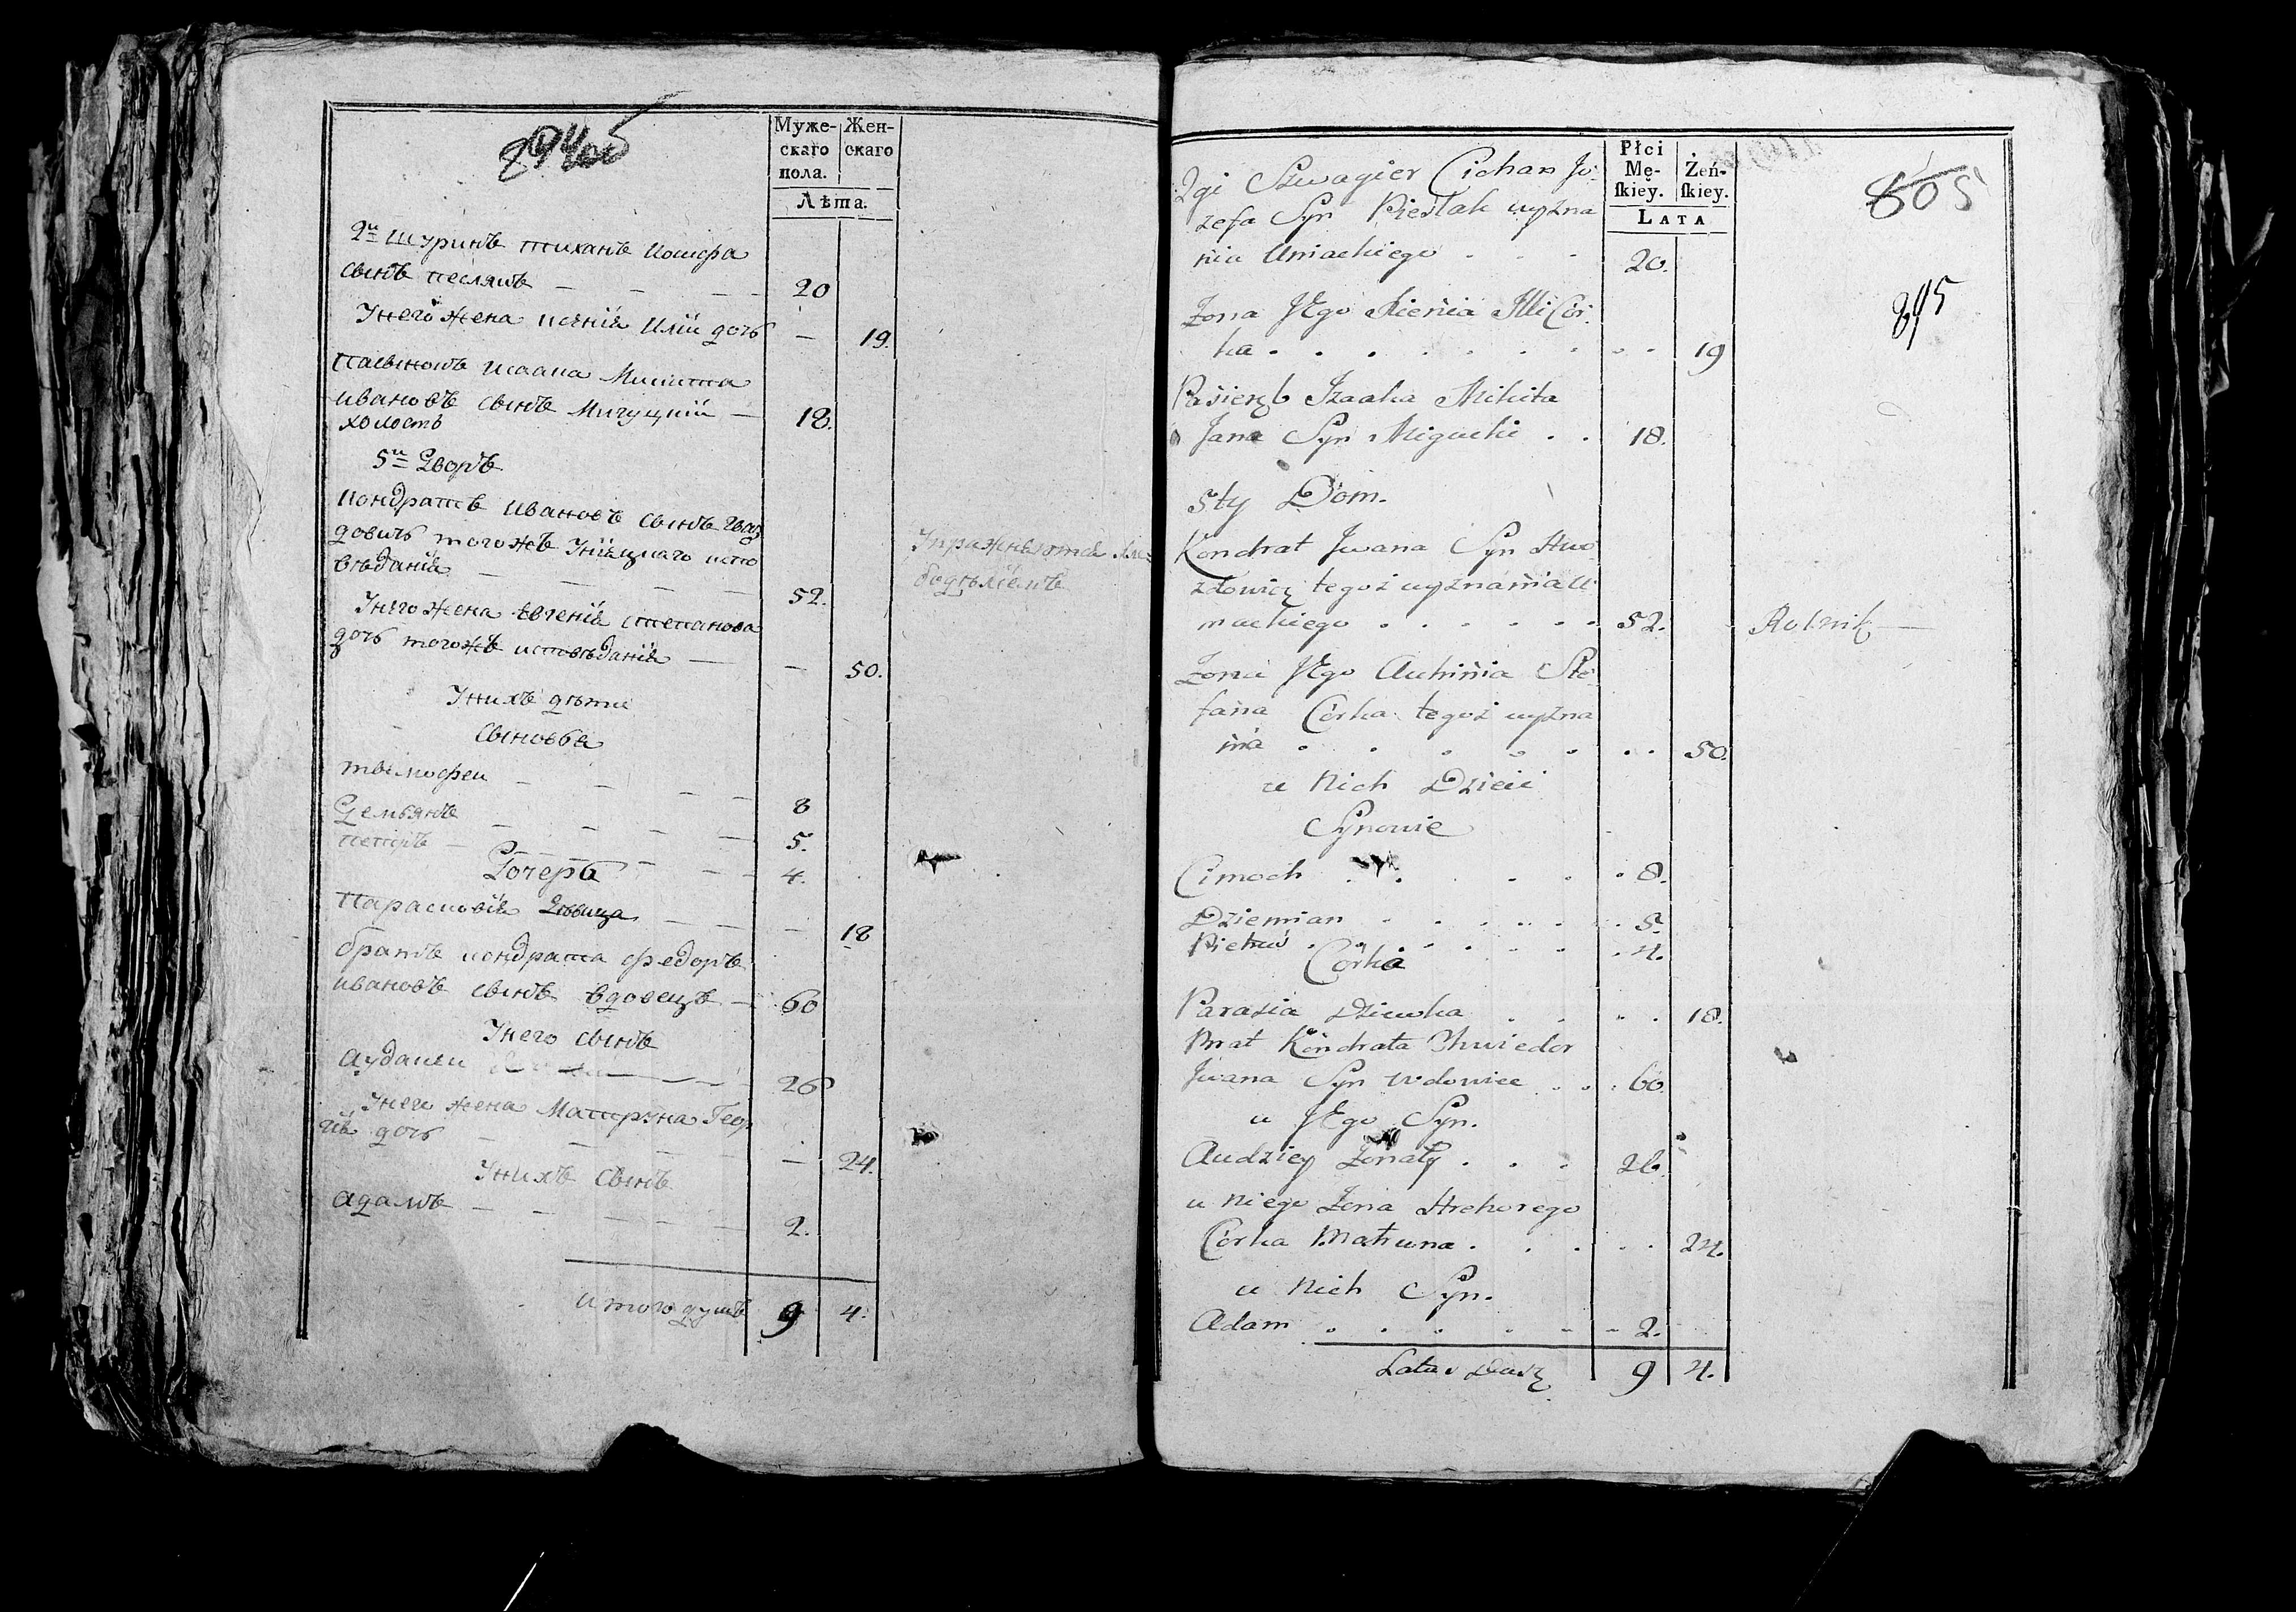 294об
Муже- Жен-
скаго скаго
пола.
Лѣта.
2й Шуринъ тиханъ иосифа
сынъ песлякъ 20
Унего жена ксенія Иліи дочь — 19.
пасынокъ исаака Микита
ивановъ сынъ Мигуцкій — 18.
холостъ
5й Дворъ
кондратъ ивановъ сынъ гваз
довичъ тогожъ Уніяцкаго испо
вѣданія 52.
Упражняется хле
бодѣліемъ
Унего жена евгенія степанова
дочь тогожъ исповѣданія — 50.
Унихъ дѣти
Сыновья
тымофеи 8
Демьянъ 5.
петръ 4.
Дочерь
Парасковія Дѣвица — 18
братъ кондрата федоръ
ивановъ сынъ вдовецъ — 60
Унего сынъ
аудакеи 26
Унего жена Матруна Геор
гія дочь — 24.
Унихъ сынъ
адамъ 2.
итого душъ 9 4.
805
895
Płci
Mę- Żeń-
ſkiey. ſkiey.
LATA
2gi Szwagier Cichan Jó
zefa Syn Pieslak wyzna
nia Uniackiego . . . 20.
Zona JEgo Xienia Illi Cór
ka . . . . . . . 19
Pasierzb Izaaka Mikita
Jana Syn Migucki . . 18.
5ty Dom.
Kondrat Jwana Syn Hwo
zdowicz tegoż wyznania U
niackiego . . . . . . 52. Rolnik —
Zona JEgo Auhinia Ste
fana Córka tegoż wyzna
nia . . . . . . . 50.
u Nich Dzieci
Synowie
Cimoch . . . . . 8.
Dziemian . . . . . 5.
Pietruś . . . . . 4.
Córka
Parasia Dziewka . . . . 18.
Brat Kondrata Chwiedor
Jwana Syn wdowiec . . . 60.
u JEgo Syn.
Audziey Zonaty . . . 26.
u Niego Zona Hrehorego
Córka Matruna . . . . . 24.
u Nich Syn.
Adam . . . . . . 2.
Latus Dusz 9 4.